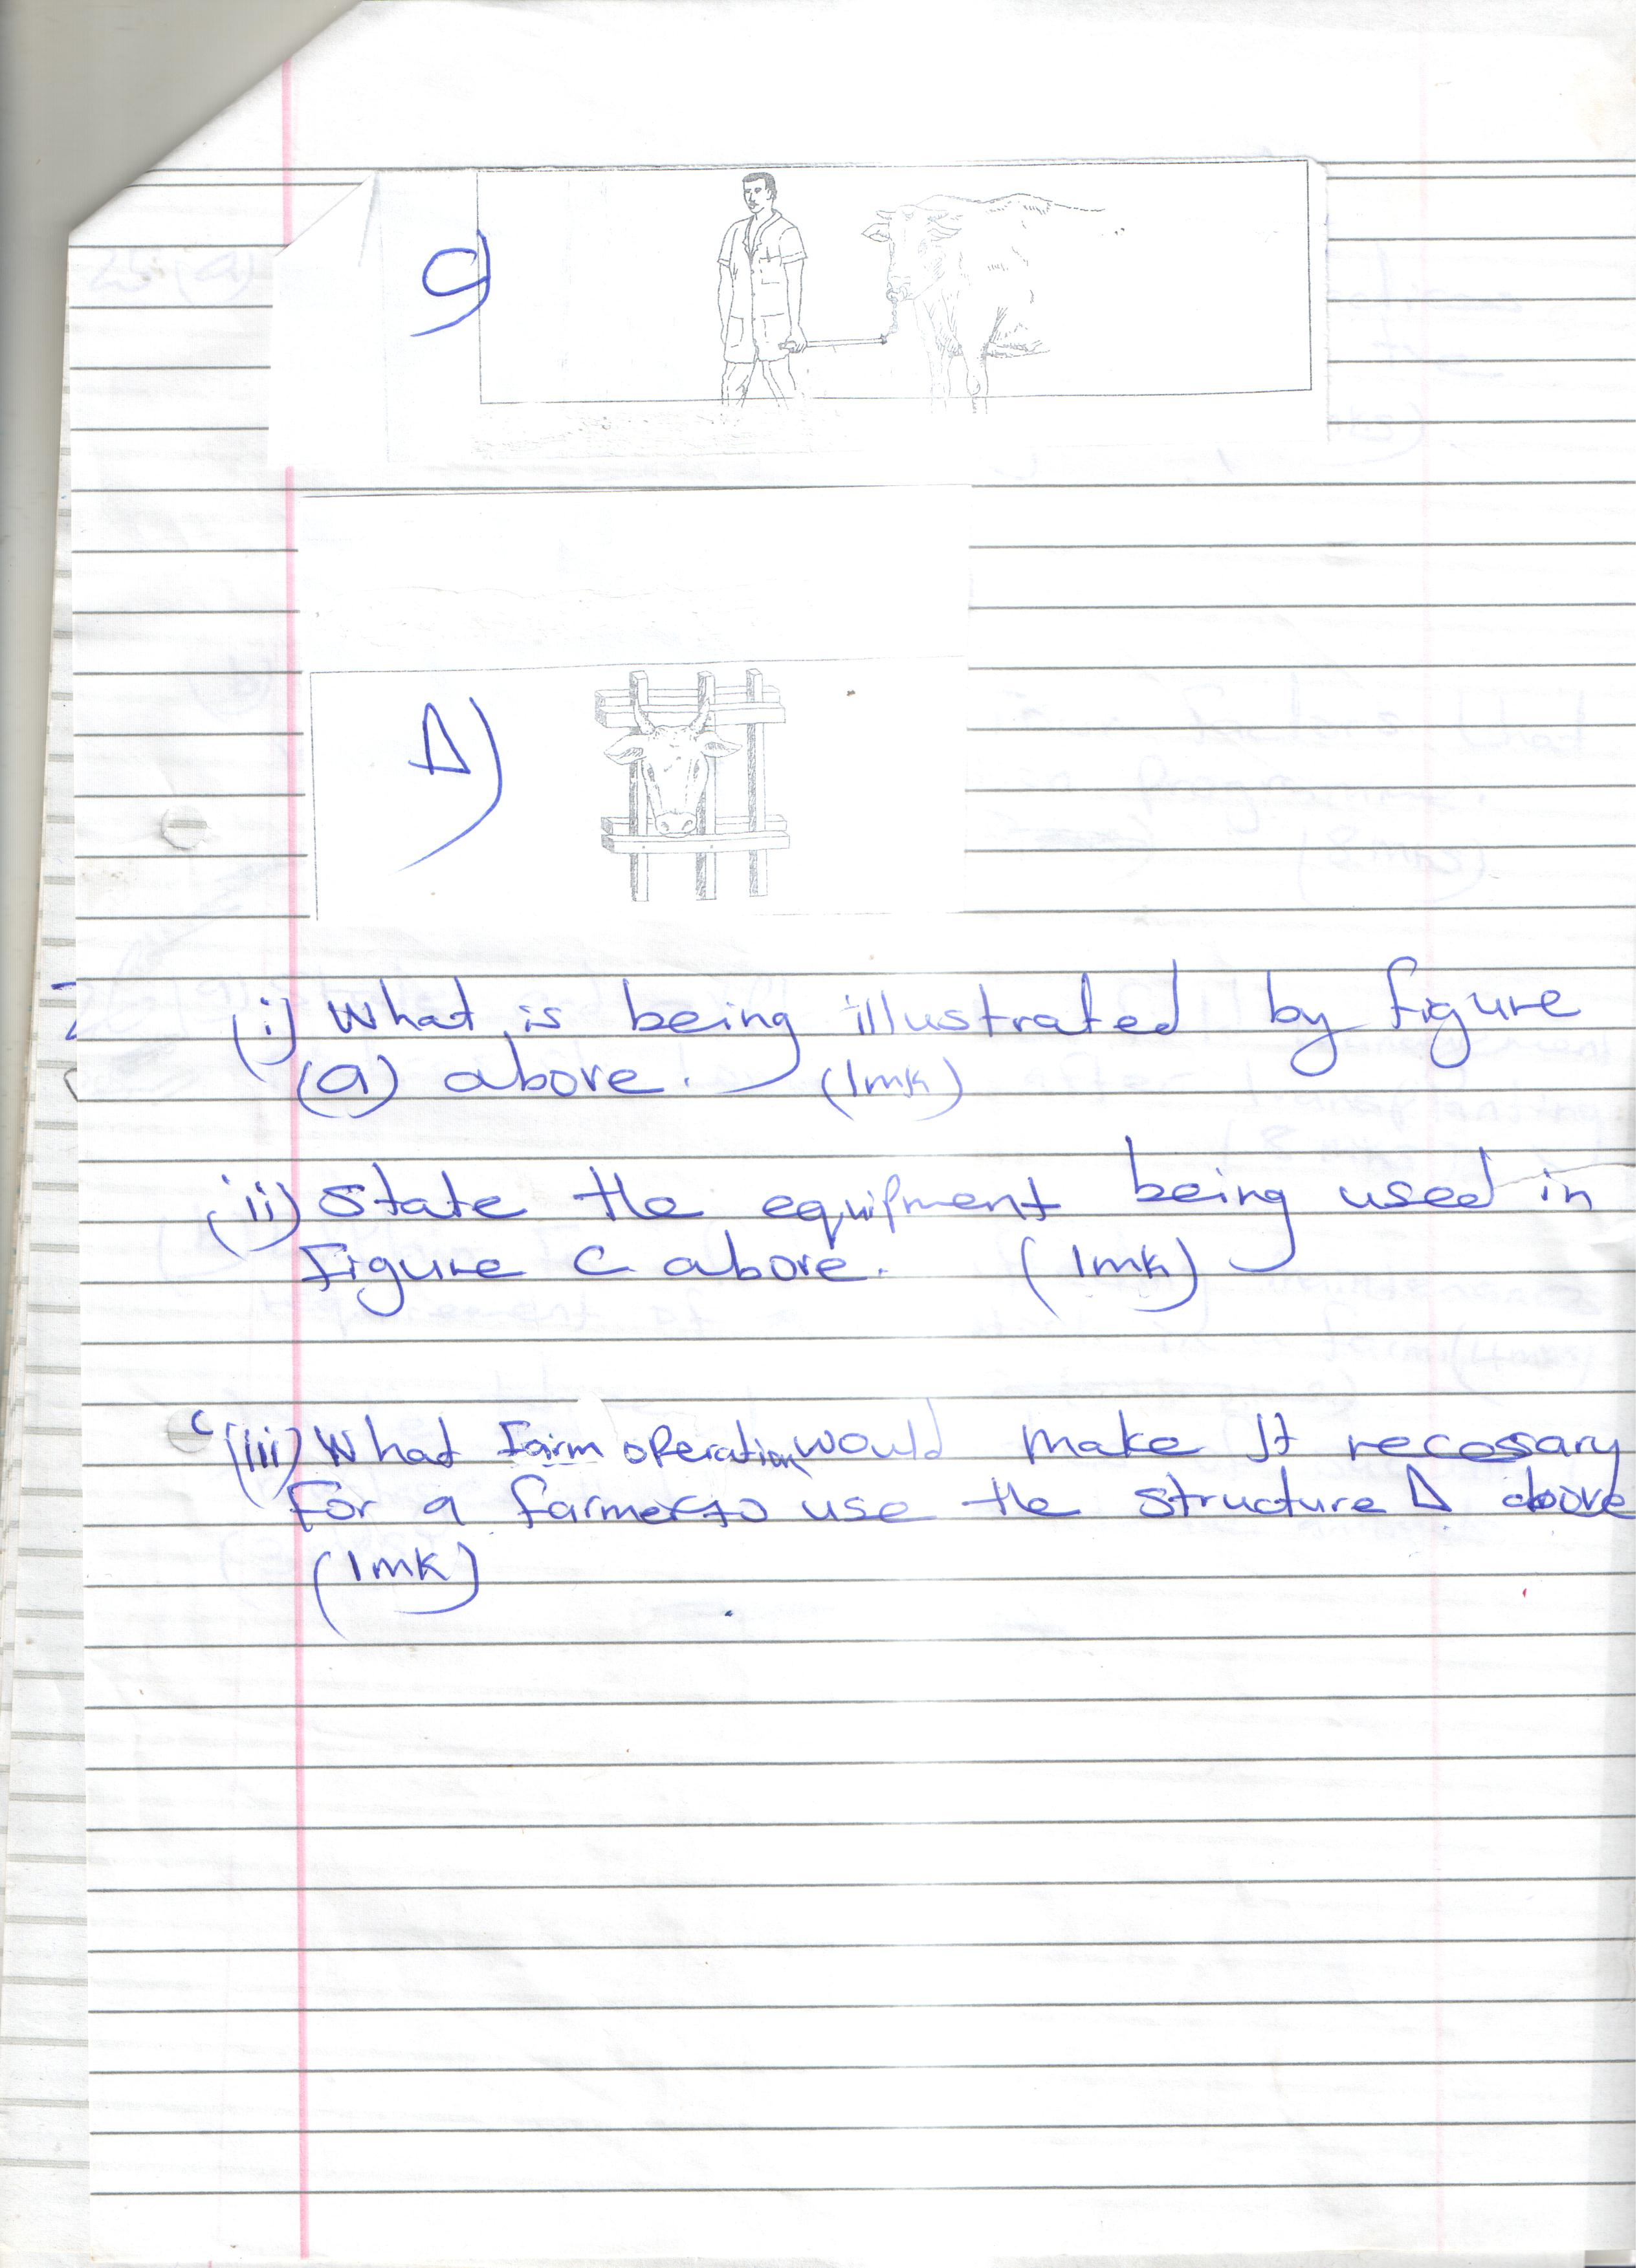 C)
D)
(i) What is being illustrated by figure
(a) above. (1mk)
(ii) State the equipment being used in
Figure C above. (1mk)
(iii) What Farm operation would make It necessary
For a farmer to use the structure D above
(1mk)